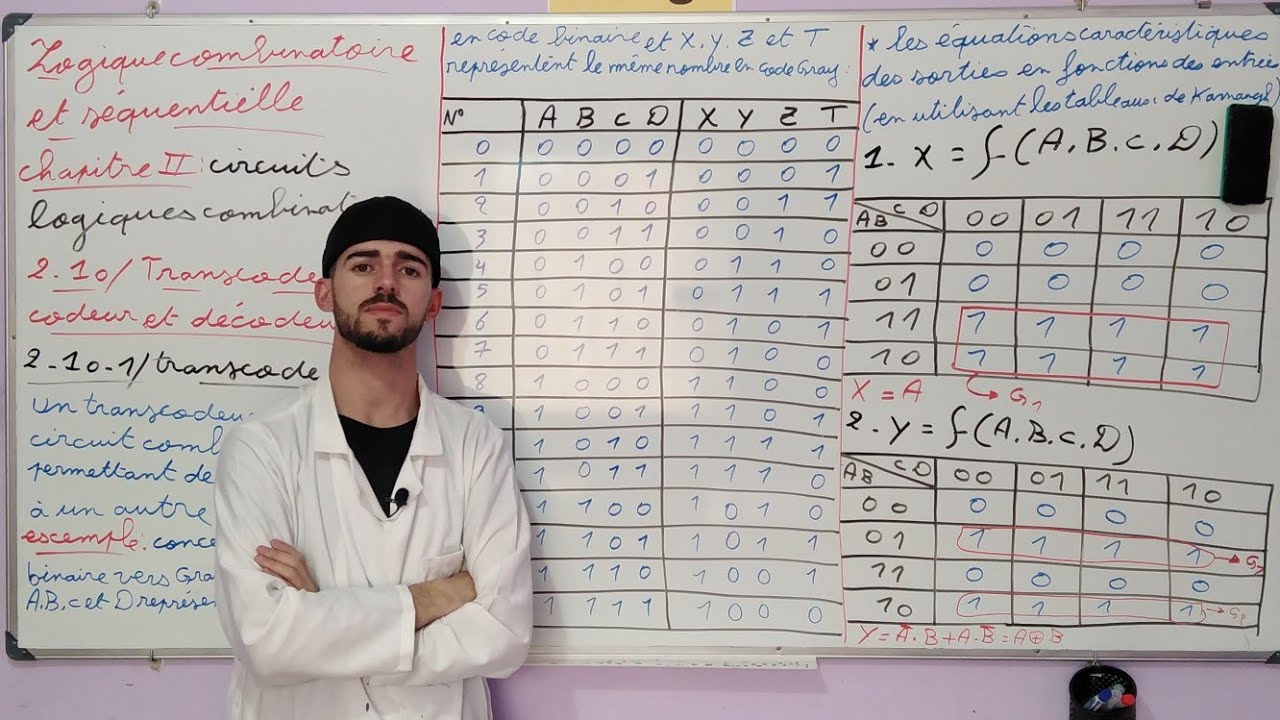 Logique combinatoire
et séquentielle
chapitre II : circuits
logiques combinat
2-10/ Transcode
codeur et décodeu
2-10-1/ transcode
un transcodeu
circuit comb
permettant de
à un autre
escemple. conce
binaire vers Gra
A.B.C et D représen
en code binaire et X, Y, Z et T
représentent le même nombre en code Gray:
N° A B C D X Y Z T
0 0 0 0 0 0 0 0 0
1 0 0 0 1 0 0 0 1
2 0 0 1 0 0 0 1 1
3 0 0 1 1 0 0 1 0
4 0 1 0 0 0 1 1 0
5 0 1 0 1 0 1 1 1
6 0 1 1 0 0 1 0 1
7 0 1 1 1 0 1 0 0
8 1 0 0 0 1 1 0 0
9 1 0 0 1 1 1 0 1
1 0 1 0 1 1 1 1
1 0 1 1 1 1 1 0
1 1 0 0 1 0 1 0
1 1 0 1 1 0 1 1
1 1 1 0 1 0 0 1
1 1 1 1 1 0 0 0
* les équations caractéristiques
des sorties en fonctions des entrées
(en utilisant les tableaux de Karnaugh)
1. X = f(A.B.C.D)
AB CD 00 01 11 10
00 0 0 0 0
01 0 0 0 0
11 1 1 1 1
10 1 1 1 1
X = A G1
2. Y = f(A.B.C.D)
AB CD 00 01 11 10
00 0 0 0 0
01 1 1 1 1 G1
11 0 0 0 0
10 1 1 1 1 G2
Y = A̅.B + A.B̅ = A⊕B